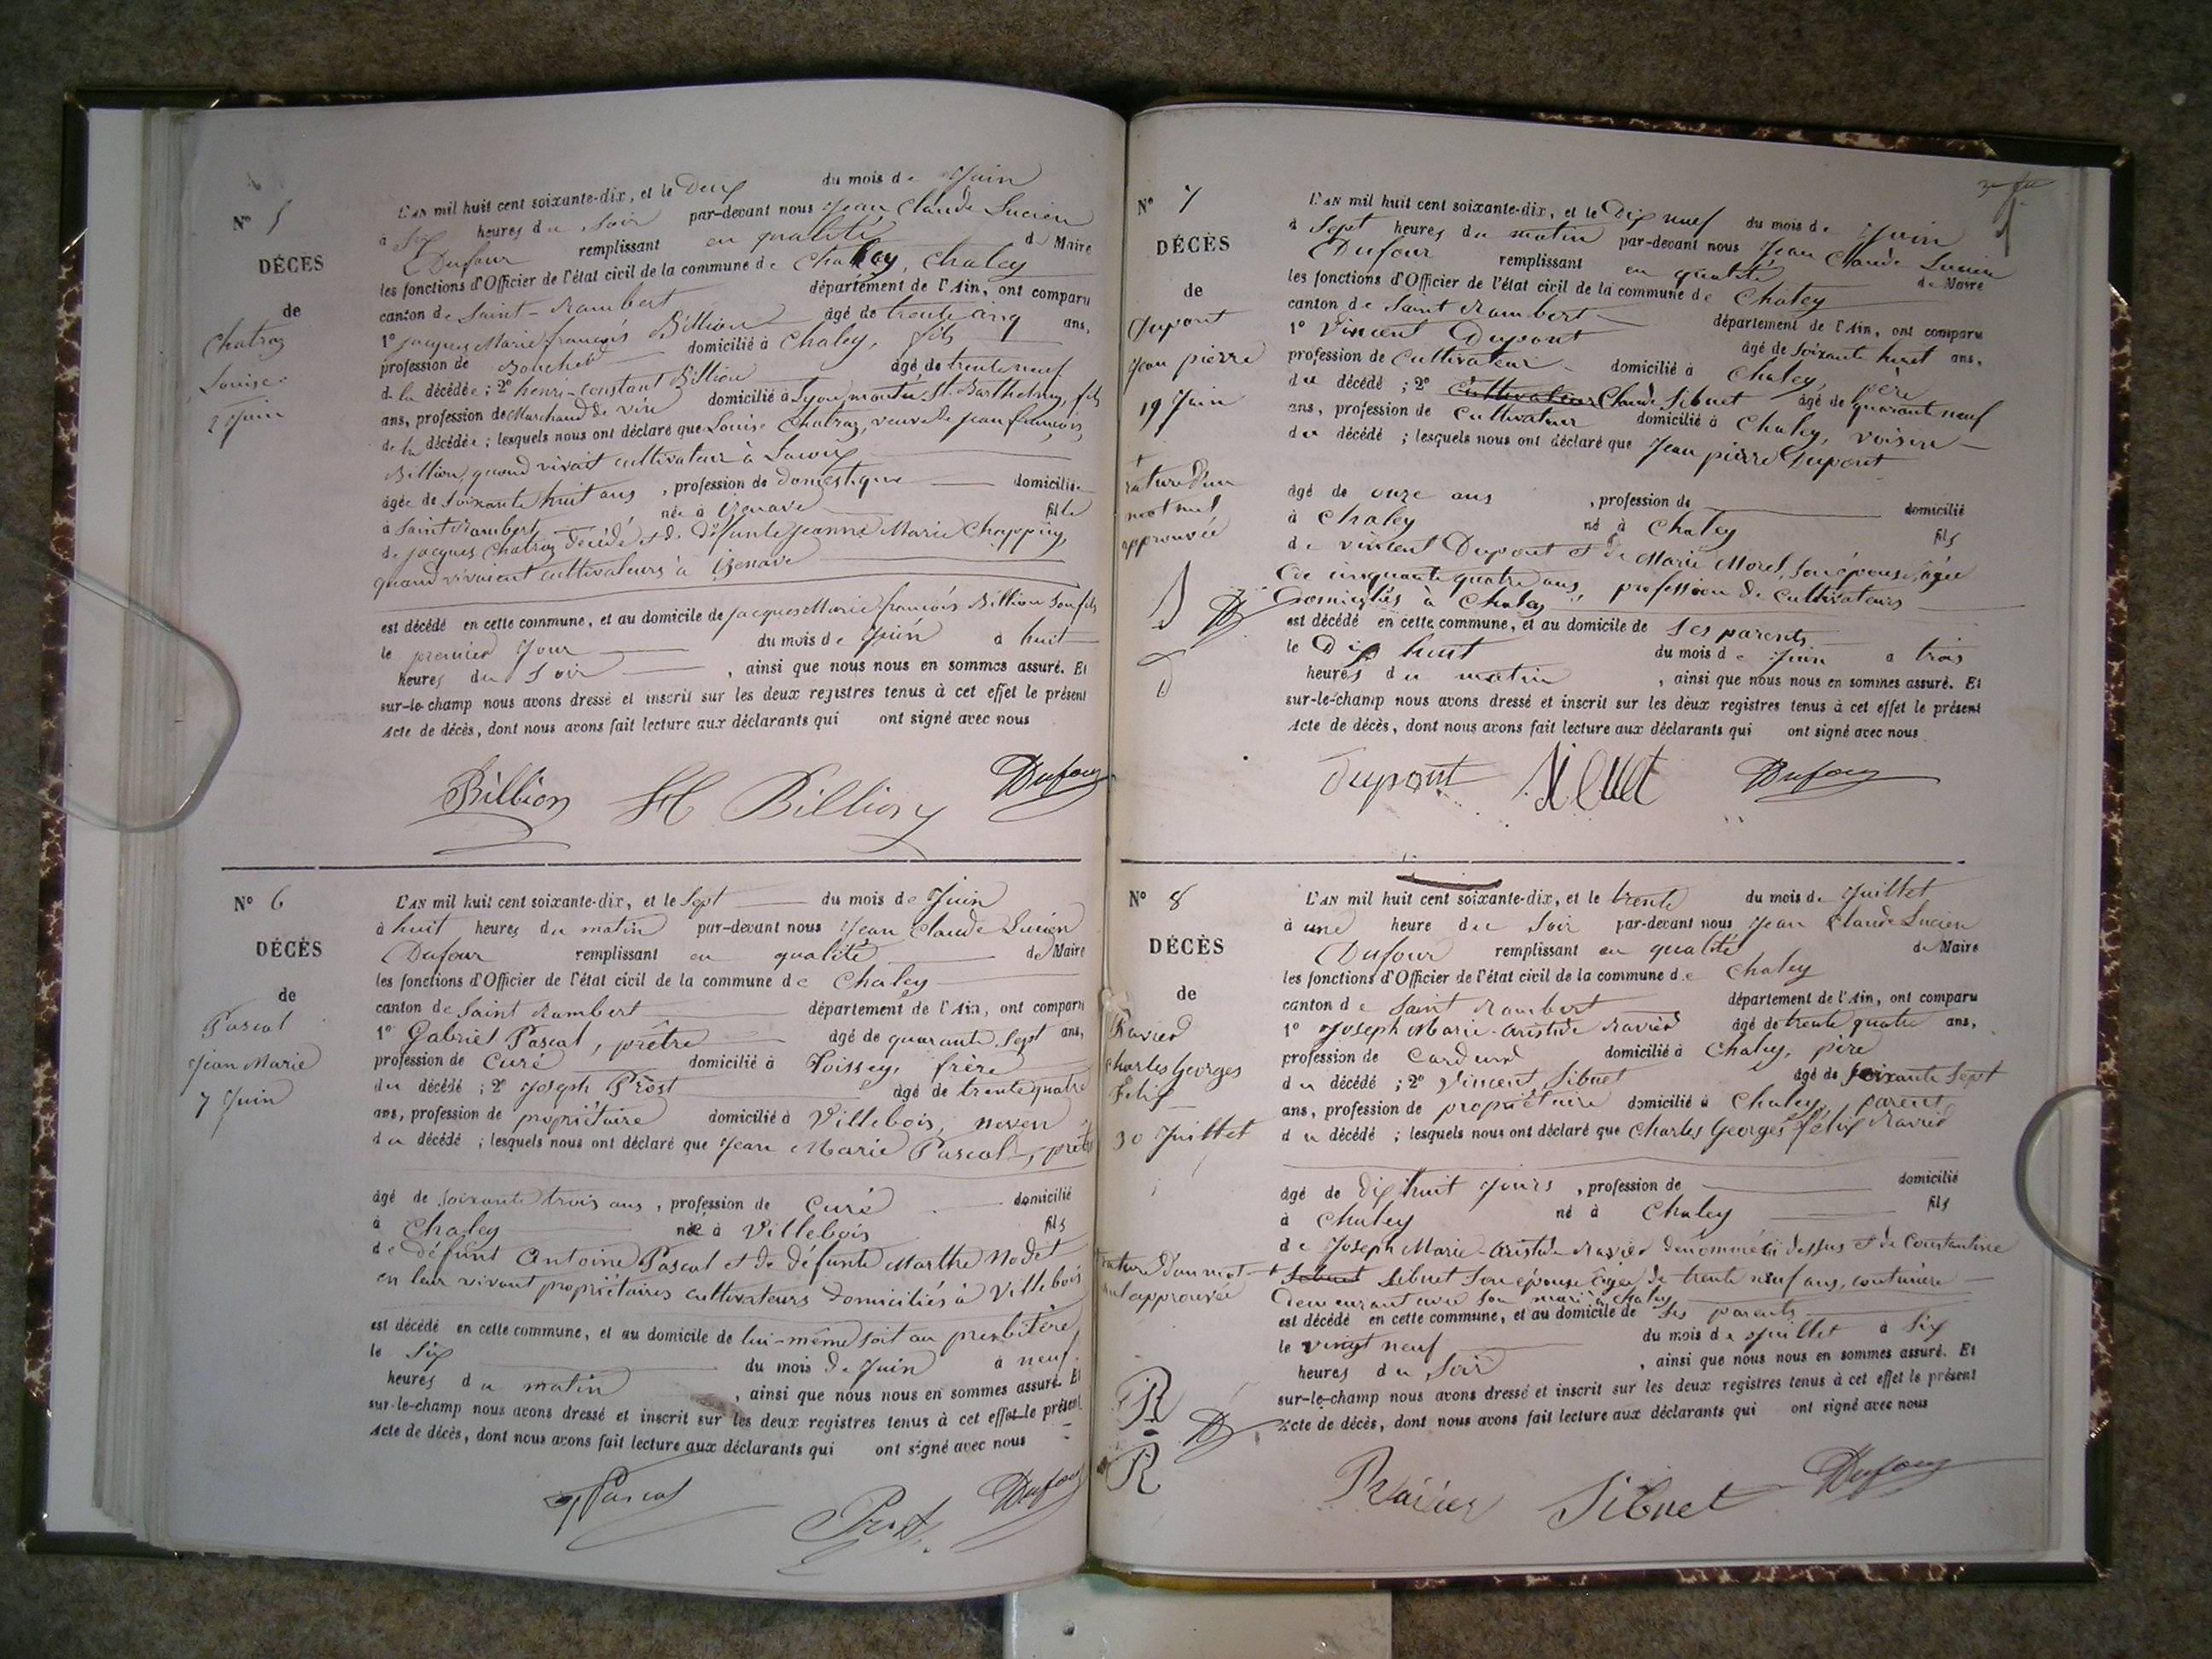 N° 5
DÉCÈS
de
Chatraz
Louise
2 Juin
L'AN mil huit cent soixante-dix, et le Deux du mois de Juin
à Six heures du Soir par-devant nous Jean Claude Lucien
Dufour remplissant en qualité de Maire
les fonctions d'Officier de l'état civil de la commune de Chaley, Chaley
canton de Saint-Rambert département de l'Ain, ont comparu
1° Jacques Marie françois Billion âgé de trente cinq ans,
profession de Boucher domicilié à Chaley, fils
de la décédée; 2° henri-constant Billion âgé de trente neuf
ans, profession de Marchand de vin domicilié à Lyon, montée St. Barthelmy, fils
de la décédée; lesquels nous ont déclaré que Louise Chatraz, veuve de Jean françois
Billion, quand vivait cultivateur à
âgée de Soixante huit ans, profession de domestique domiciliée
à Saint Rambert née à Izenave fille
de Jacques Chatraz décédé et de Défunte Jeanne Marie Chappuy,
quand vivaient cultivateurs à Izenave
est décédé en cette commune, et au domicile de Jacques Marie françois Billion son fils
le premier Jour du mois de Juin à huit
heures du Soir, ainsi que nous nous en sommes assuré. Et
sur-le-champ nous avons dressé et inscrit sur les deux registres tenus à cet effet le présent
Acte de décès, dont nous avons fait lecture aux déclarants qui ont signé avec nous
Billion H Billion Dufour
N° 6
DÉCÈS
de
Pascal
Jean Marie
7 Juin
L'AN mil huit cent soixante-dix, et le Sept du mois de Juin
à huit heures du matin par-devant nous Jean Claude Lucien
Dufour remplissant en qualité de Maire
les fonctions d'Officier de l'état civil de la commune de Chaley
canton de Saint Rambert département de l'Ain, ont comparu
1° Gabriel Pascal, prêtre âgé de quarante Sept ans,
profession de Curé domicilié à Foissey, frère
du décédé; 2° Joseph Prost âgé de trente quatre
ans, profession de propriétaire domicilié à Villebois, neveu
du décédé; lesquels nous ont déclaré que Jean Marie Pascal, prêtre
âgé de soixante trois ans, profession de Curé domicilié
à Chaley né à Villebois fils
de défunt Antoine Pascal et de défunte Marthe Nodet
en leur vivant propriétaires cultivateurs domiciliés à Villebois
est décédé en cette commune, et au domicile de lui-même soit au presbitère,
le Six du mois de Juin à neuf
heures du matin, ainsi que nous nous en sommes assuré. Et
sur-le-champ nous avons dressé et inscrit sur les deux registres tenus à cet effet le présent
Acte de décès, dont nous avons fait lecture aux déclarants qui ont signé avec nous
Pascal Prost Dufour
N° 7
DÉCÈS
de
Dupont
Jean pierre
19 Juin
rature d'un
mot nul
approuvée
L'AN mil huit cent soixante-dix, et le Dix neuf du mois de Juin
à Sept heures du matin par-devant nous Jean Claude Lucien
Dufour remplissant en qualité de Maire
les fonctions d'Officier de l'état civil de la commune de Chaley
canton de Saint Rambert département de l'Ain, ont comparu
1° Vincent Dupont âgé de soixante huit ans,
profession de Cultivateur domicilié à Chaley, père
du décédé; 2° Cultivateur Claude Sibuet âgé de quarante neuf
ans, profession de Cultivateur domicilié à Chaley, voisin
du décédé; lesquels nous ont déclaré que Jean pierre Dupont
âgé de onze ans, profession de domicilié
à Chaley né à Chaley fils
de vincent Dupont et de Marie Morel, son épouse, âgée
de cinquante quatre ans, profession de cultivateurs
Domiciliés à Chaley
est décédé en cette commune, et au domicile de Ses parents
le Dix huit du mois de Juin à trois
heures du matin, ainsi que nous nous en sommes assuré. Et
sur-le-champ nous avons dressé et inscrit sur les deux registres tenus à cet effet le présent
Acte de décès, dont nous avons fait lecture aux déclarants qui ont signé avec nous
Dupont Sibuet Dufour
N° 8
DÉCÈS
de
Ravier
Charles Georges
Félix
30 Juillet
rature d'un mot
nul approuvée
R
R
L'AN mil huit cent soixante-dix, et le trente du mois de Juillet
à une heure du Soir par-devant nous Jean Claude Lucien
Dufour remplissant en qualité de Maire
les fonctions d'Officier de l'état civil de la commune de Chaley
canton de Saint Rambert département de l'Ain, ont comparu
1° Joseph Marie-Aristide Ravier âgé de trente quatre ans,
profession de Cardeur domicilié à Chaley, père
du décédé; 2° Vincent Sibuet âgé de soixante Sept
ans, profession de propriétaire domicilié à Chaley, parent
du décédé; lesquels nous ont déclaré que Charles Georges félix Ravier
âgé de Dix huit Jours, profession de domicilié
à Chaley né à Chaley fils
de Joseph Marie-Aristide Ravier dénommé ci dessus et de Constantine
Sibuet Sibuet son épouse âgée de trente neuf ans, couturière
Demeurant avec son mari à Chaley
est décédé en cette commune, et au domicile de Ses parents
le vingt neuf du mois de Juillet à Six
heures du Soir, ainsi que nous nous en sommes assuré. Et
sur-le-champ nous avons dressé et inscrit sur les deux registres tenus à cet effet le présent
Acte de décès, dont nous avons fait lecture aux déclarants qui ont signé avec nous
Ravier Sibuet Dufour